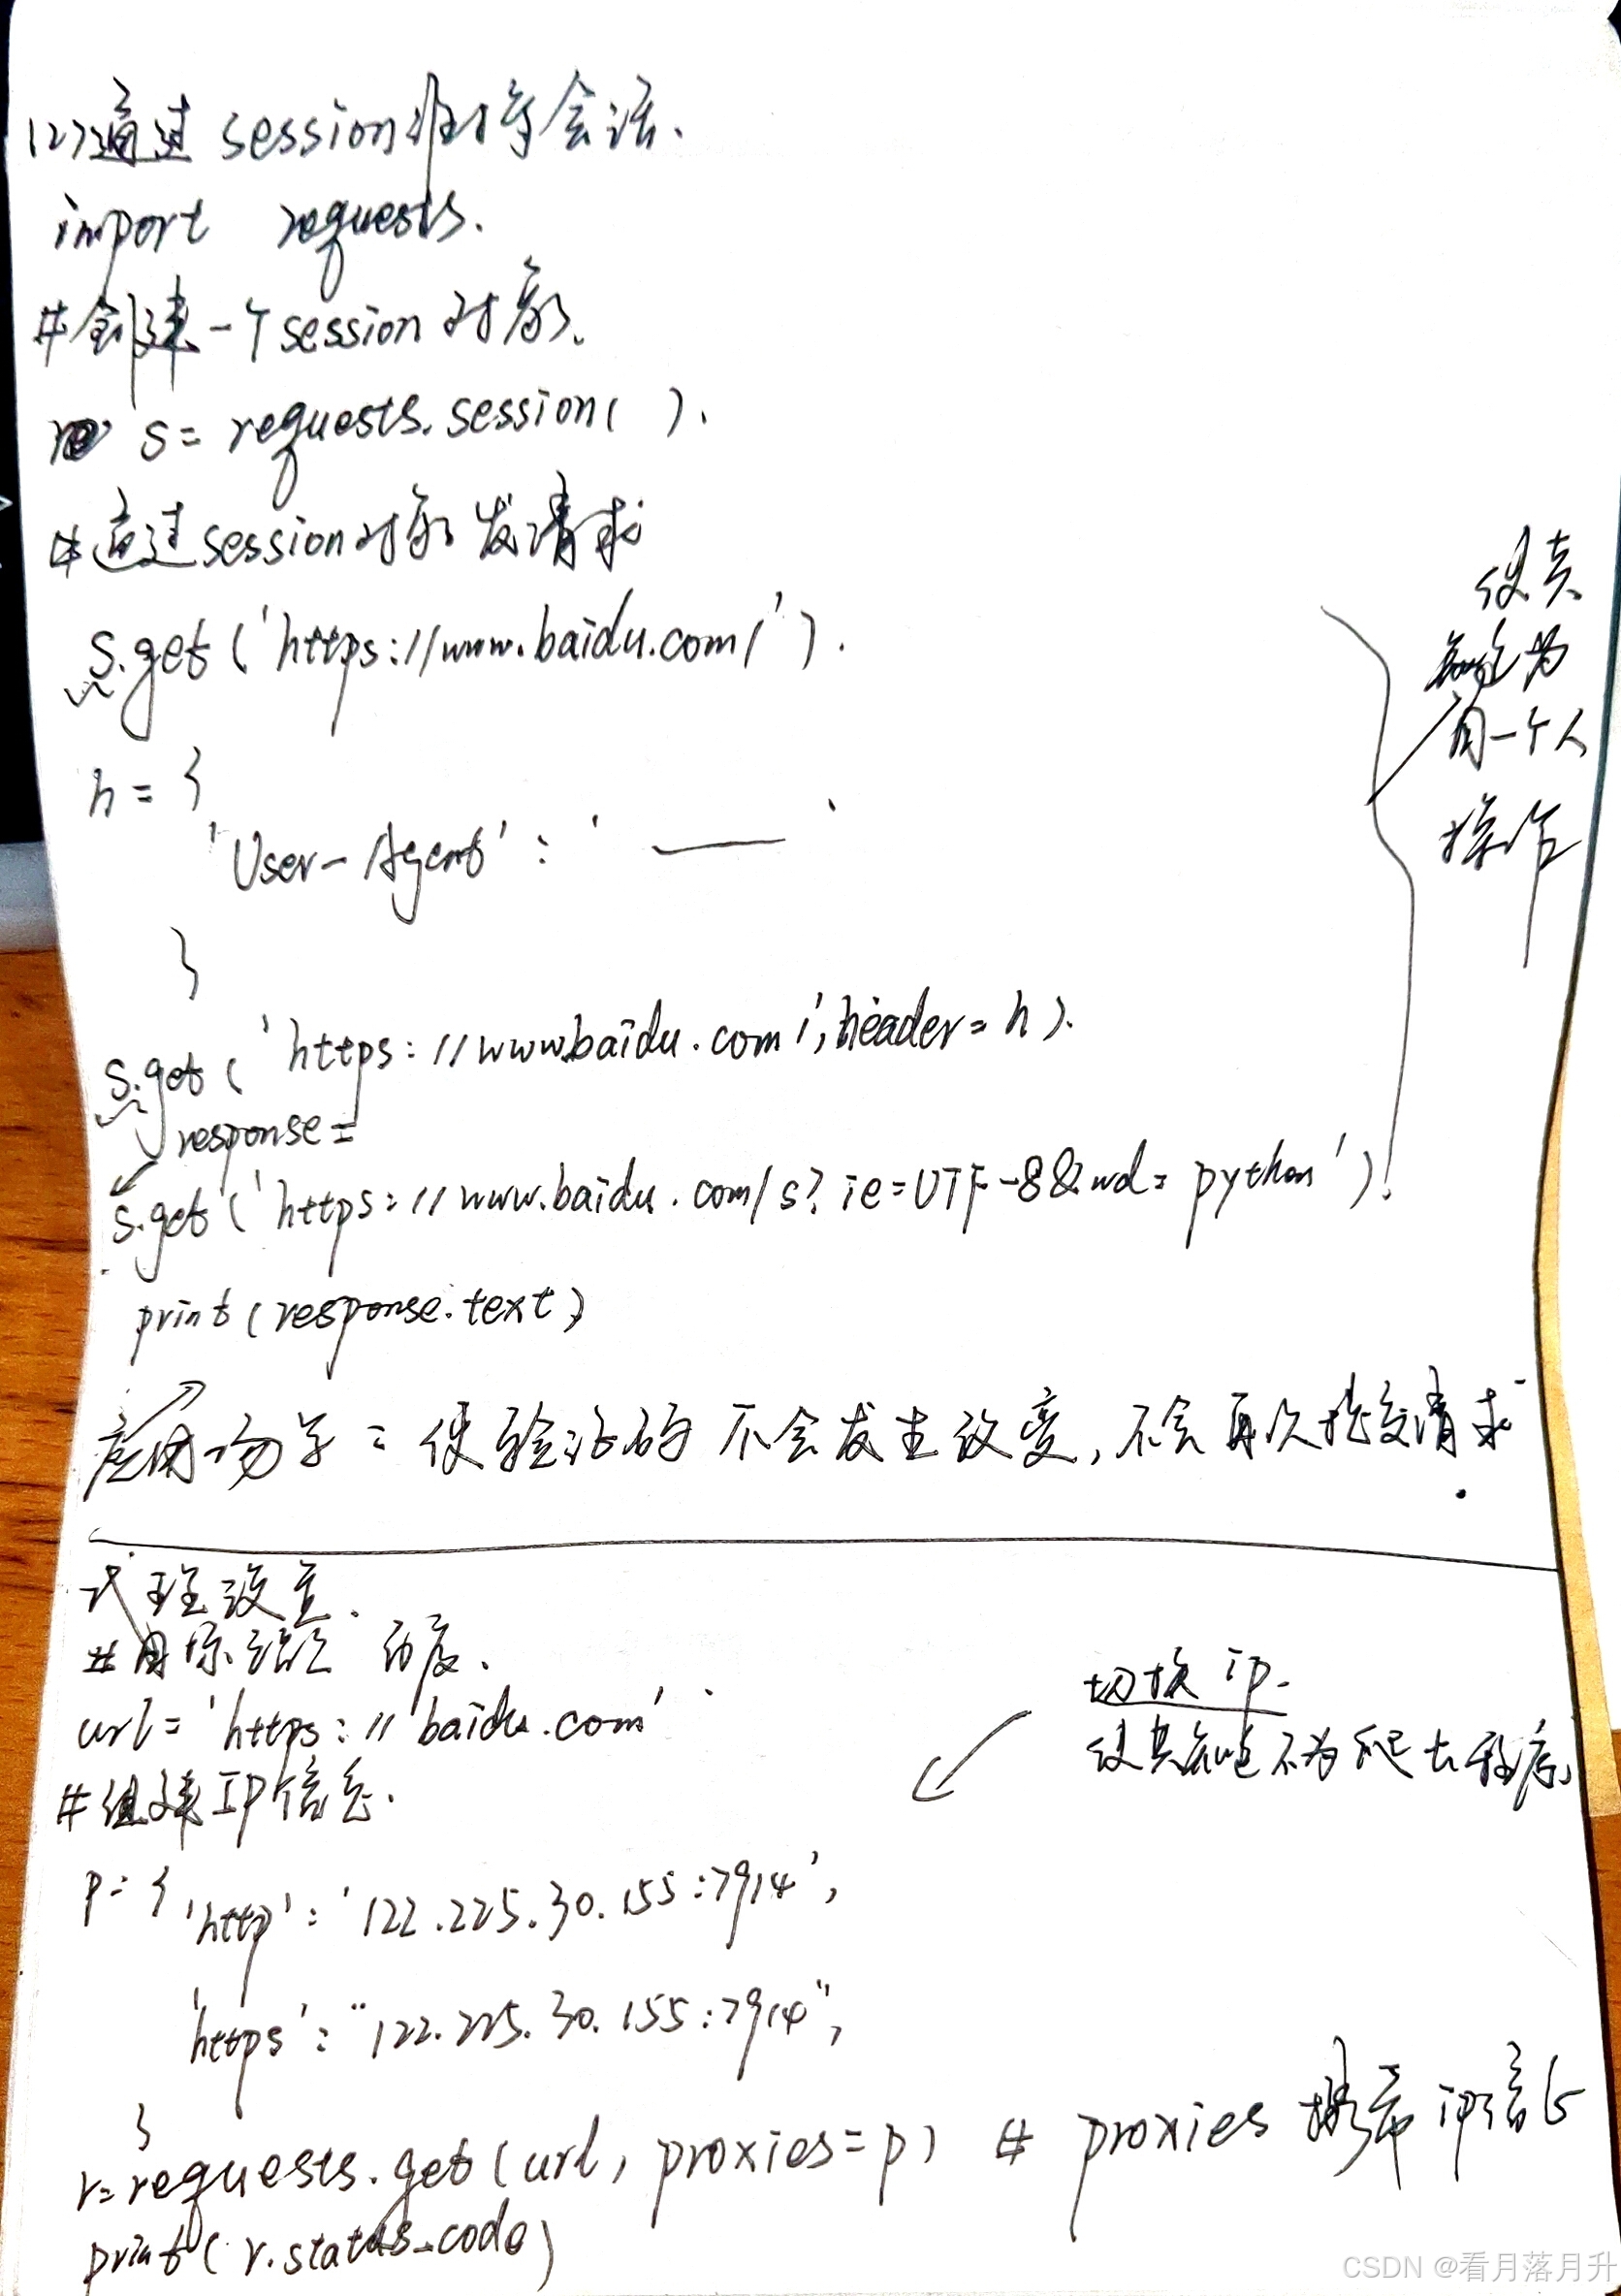 (2)通过session维持会话.
import requests.
#创建一个session对象.
s=requests.session( ).
#通过session对象发请求
s.get('https://www.baidu.com/').
h={
'User-Agent':'——'
}
s.get('https://www.baidu.com/',header=h).
response=
s.get('https://www.baidu.com/s?ie=UTF-8&wd=python')
print(response.text)
使其
知觉为
同一个人
操作
应用场景:使验证码不会发生改变,不会再次提交请求.
代理设置.
#目标 百度.
url='https://baidu.com'
#组建IP信息.
切换ip.
使其知觉不为爬虫程序
p={'http':'122.225.30.155:7914',
'https':"122.225.30.155:7914",
}
r=requests.get(url,proxies=p) # proxies 携带ip信息
print(r.status_code)
CSDN @看月落月升